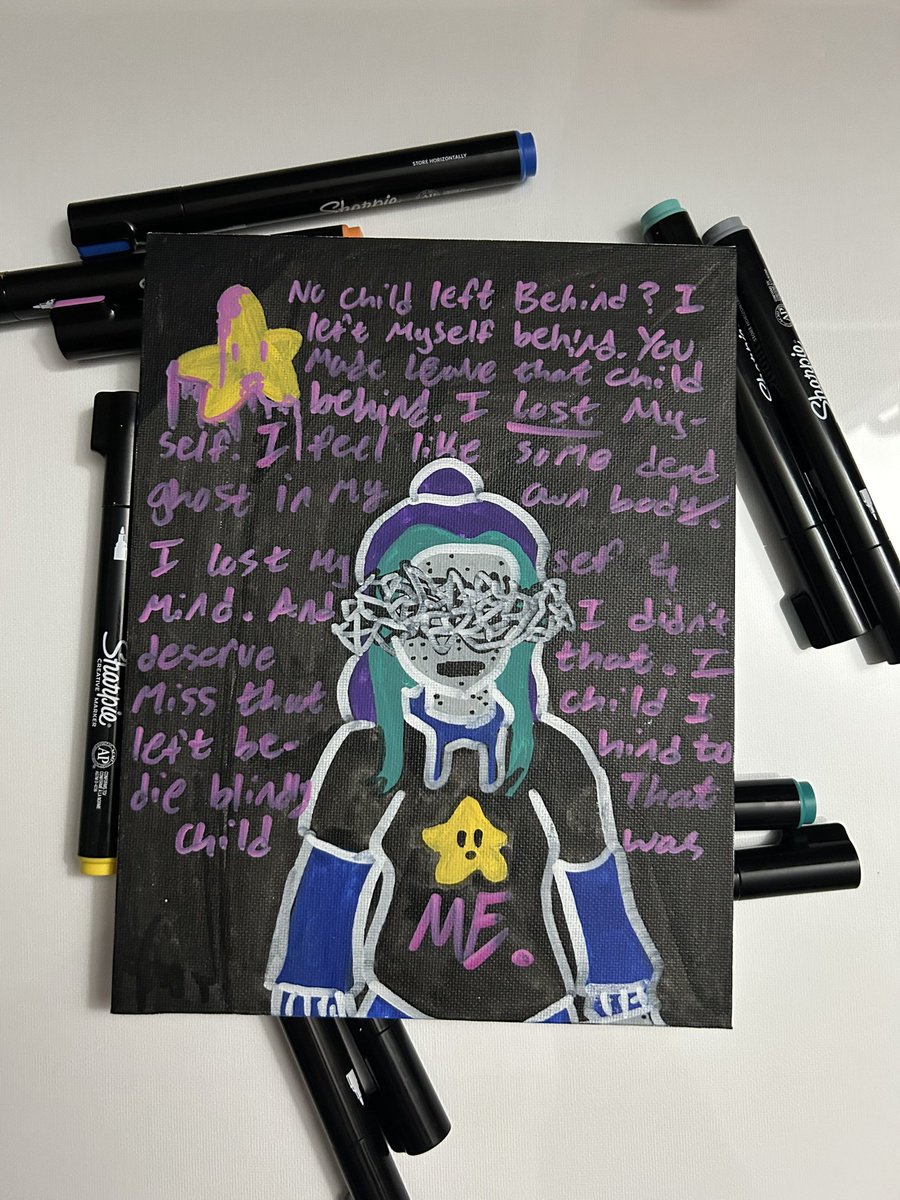 STORE HORIZONTALLY
Sharpie
No child left Behind? I
left Myself behind. You
Made leave that child
behind. I lost My-
self. I feel like some dead
ghost in my own body.
I lost My self &
Mind. And I didn't
deserve that. I
Miss that child I
left be- hind to
die blindly That
child was
ME.
Sharpie
CREATIVE MARKER
AP
Sharpie
AP